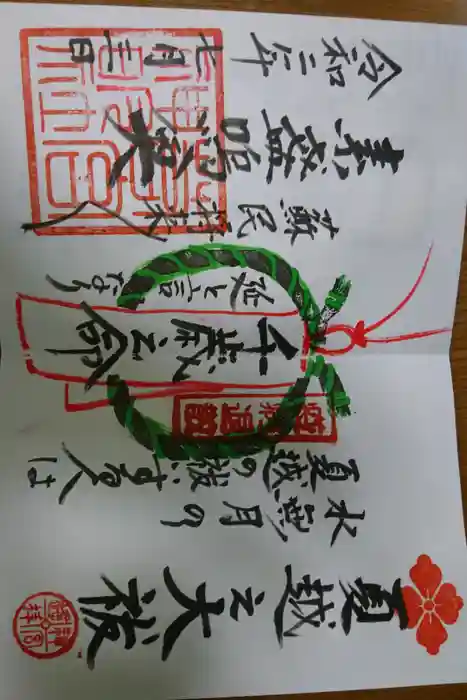 夏越之大祓
水無月の
夏越の祓する人は
疫病退散
千歳之命
延と言なり
蘇民将来
素盞嗚尊
令和二年
七月三日